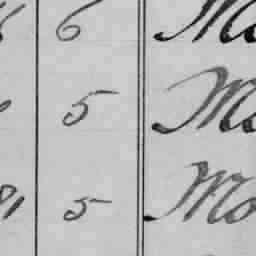 6 Mo
5 Mo
81 5 Mo